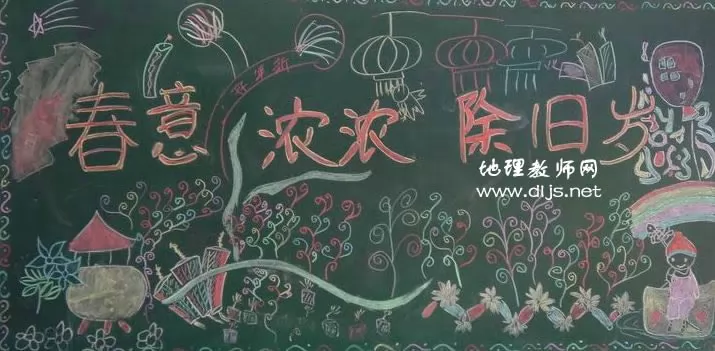 春意浓浓 除旧岁
地理教师网
www.dljs.net